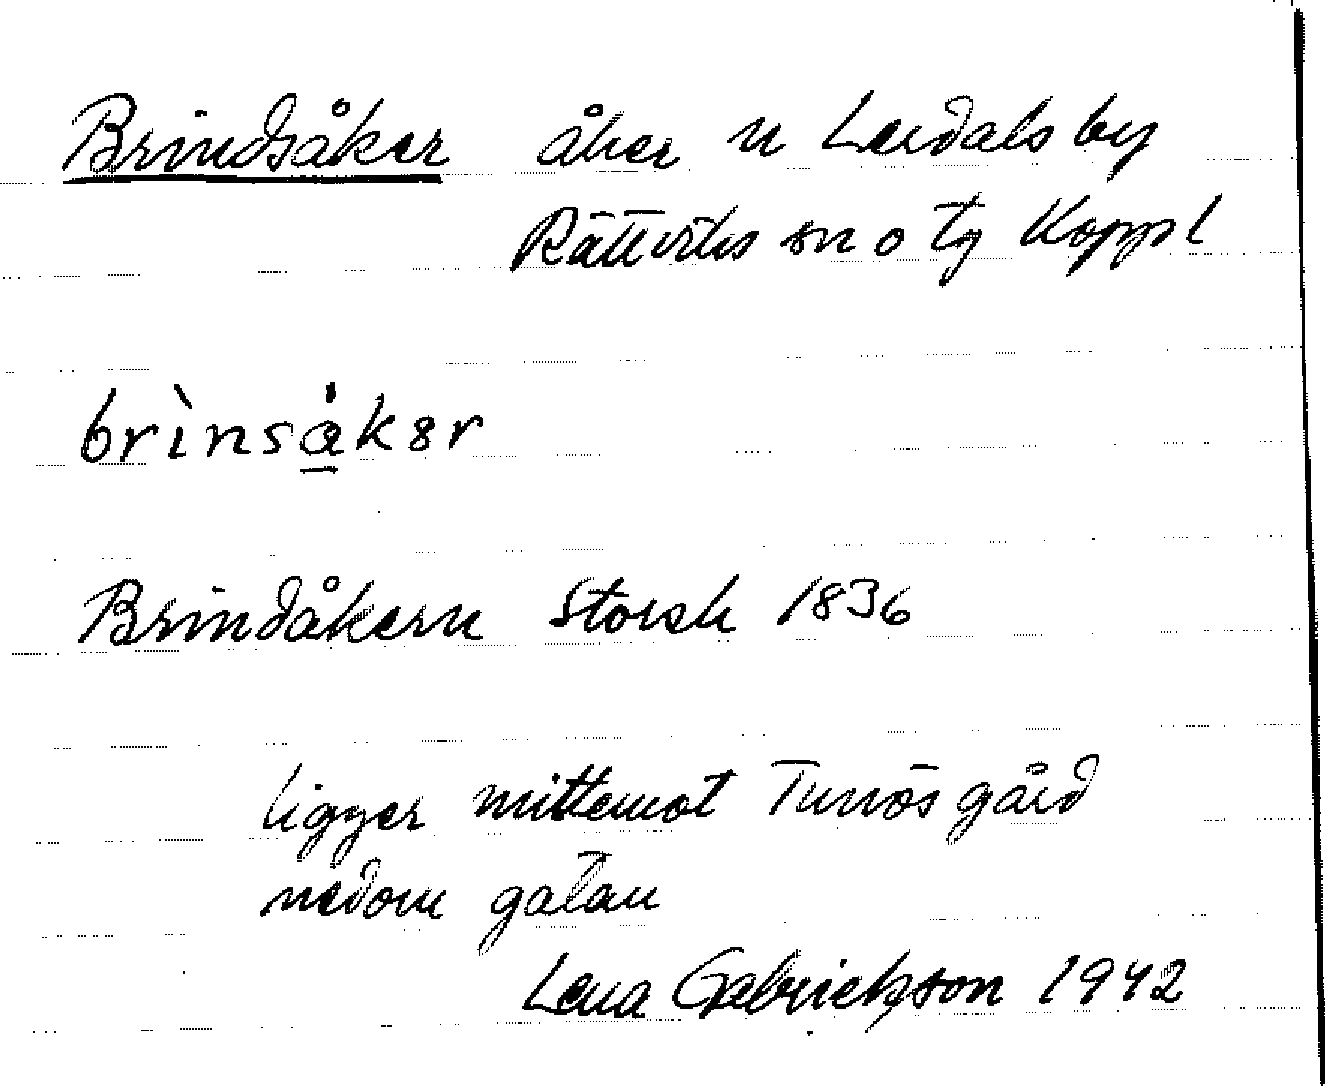 Brindsåker åker n Lerdals by
Rättviks sn o tg Koppl
brìnsåkər
Brindåkern Storsk 1836
ligger mittemot Turrôs gård
nedom gatan
Lena Gabrielsson 1942